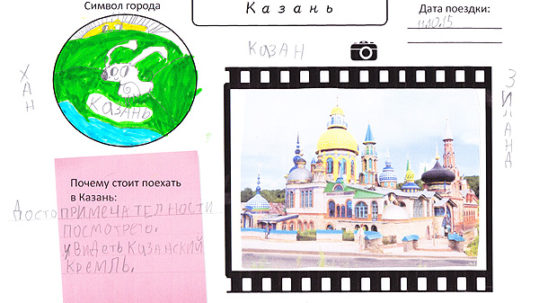 Символ города
Казань
Дата поездки:
11.10.15
КАЗАН
ХАН
КАЗАНЬ
ЗИЛАНД
Почему стоит поехать
в Казань:
ДОСТОПРИМЕЧАТЕЛНОСТИ
ПОСМОТРЕТЬ.
УВИДЕТЬ КАЗАНСКИЙ
КРЕМЛЬ.